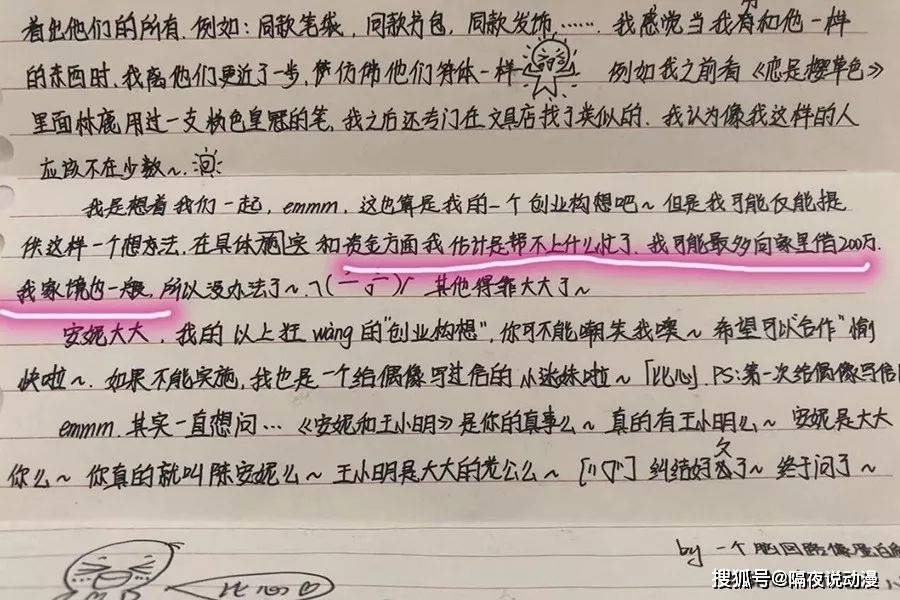 着出他们的所有.例如:同款笔袋,同款书包,同款发饰……我感觉当我有和他一样
的东西时,我离他们更近了一步,便仿佛他们算体一样 例如我之前看《恋是樱草色》
里面林鹿用过一支粉色皇冠的笔,我之后还专门在文具店找了类似的.我认为像我这样的人
应该不在少数~.
我是想着我们一起,emmm,这也算是我的一个创业构想吧~但是我可能仅能提
供这样一个想方法,在具体施实和资金方面我估计是帮不上什么忙了.我可能最多向家里借200万.
我家境也一般,所以没办法了~. 其他得靠大大了~
安妮大大,我的以上狂wàng的"创业构想",你可不能嘲笑我噢~希望可以"合作"愉
快啦~.如果不能实施,我也是一个给偶像写过信的小迷妹啦~「比心」.PS:第一次给偶像写信
emmm.其实一直想问…《安妮和王小明》是你的真事么~真的有王小明么~安妮是大大
你么~你真的就叫陈安妮么~王小明是大大的老公么~ 纠结好久了~终于问了~
by 一个脑回路像蛋白
比心
搜狐号@隔夜说动漫